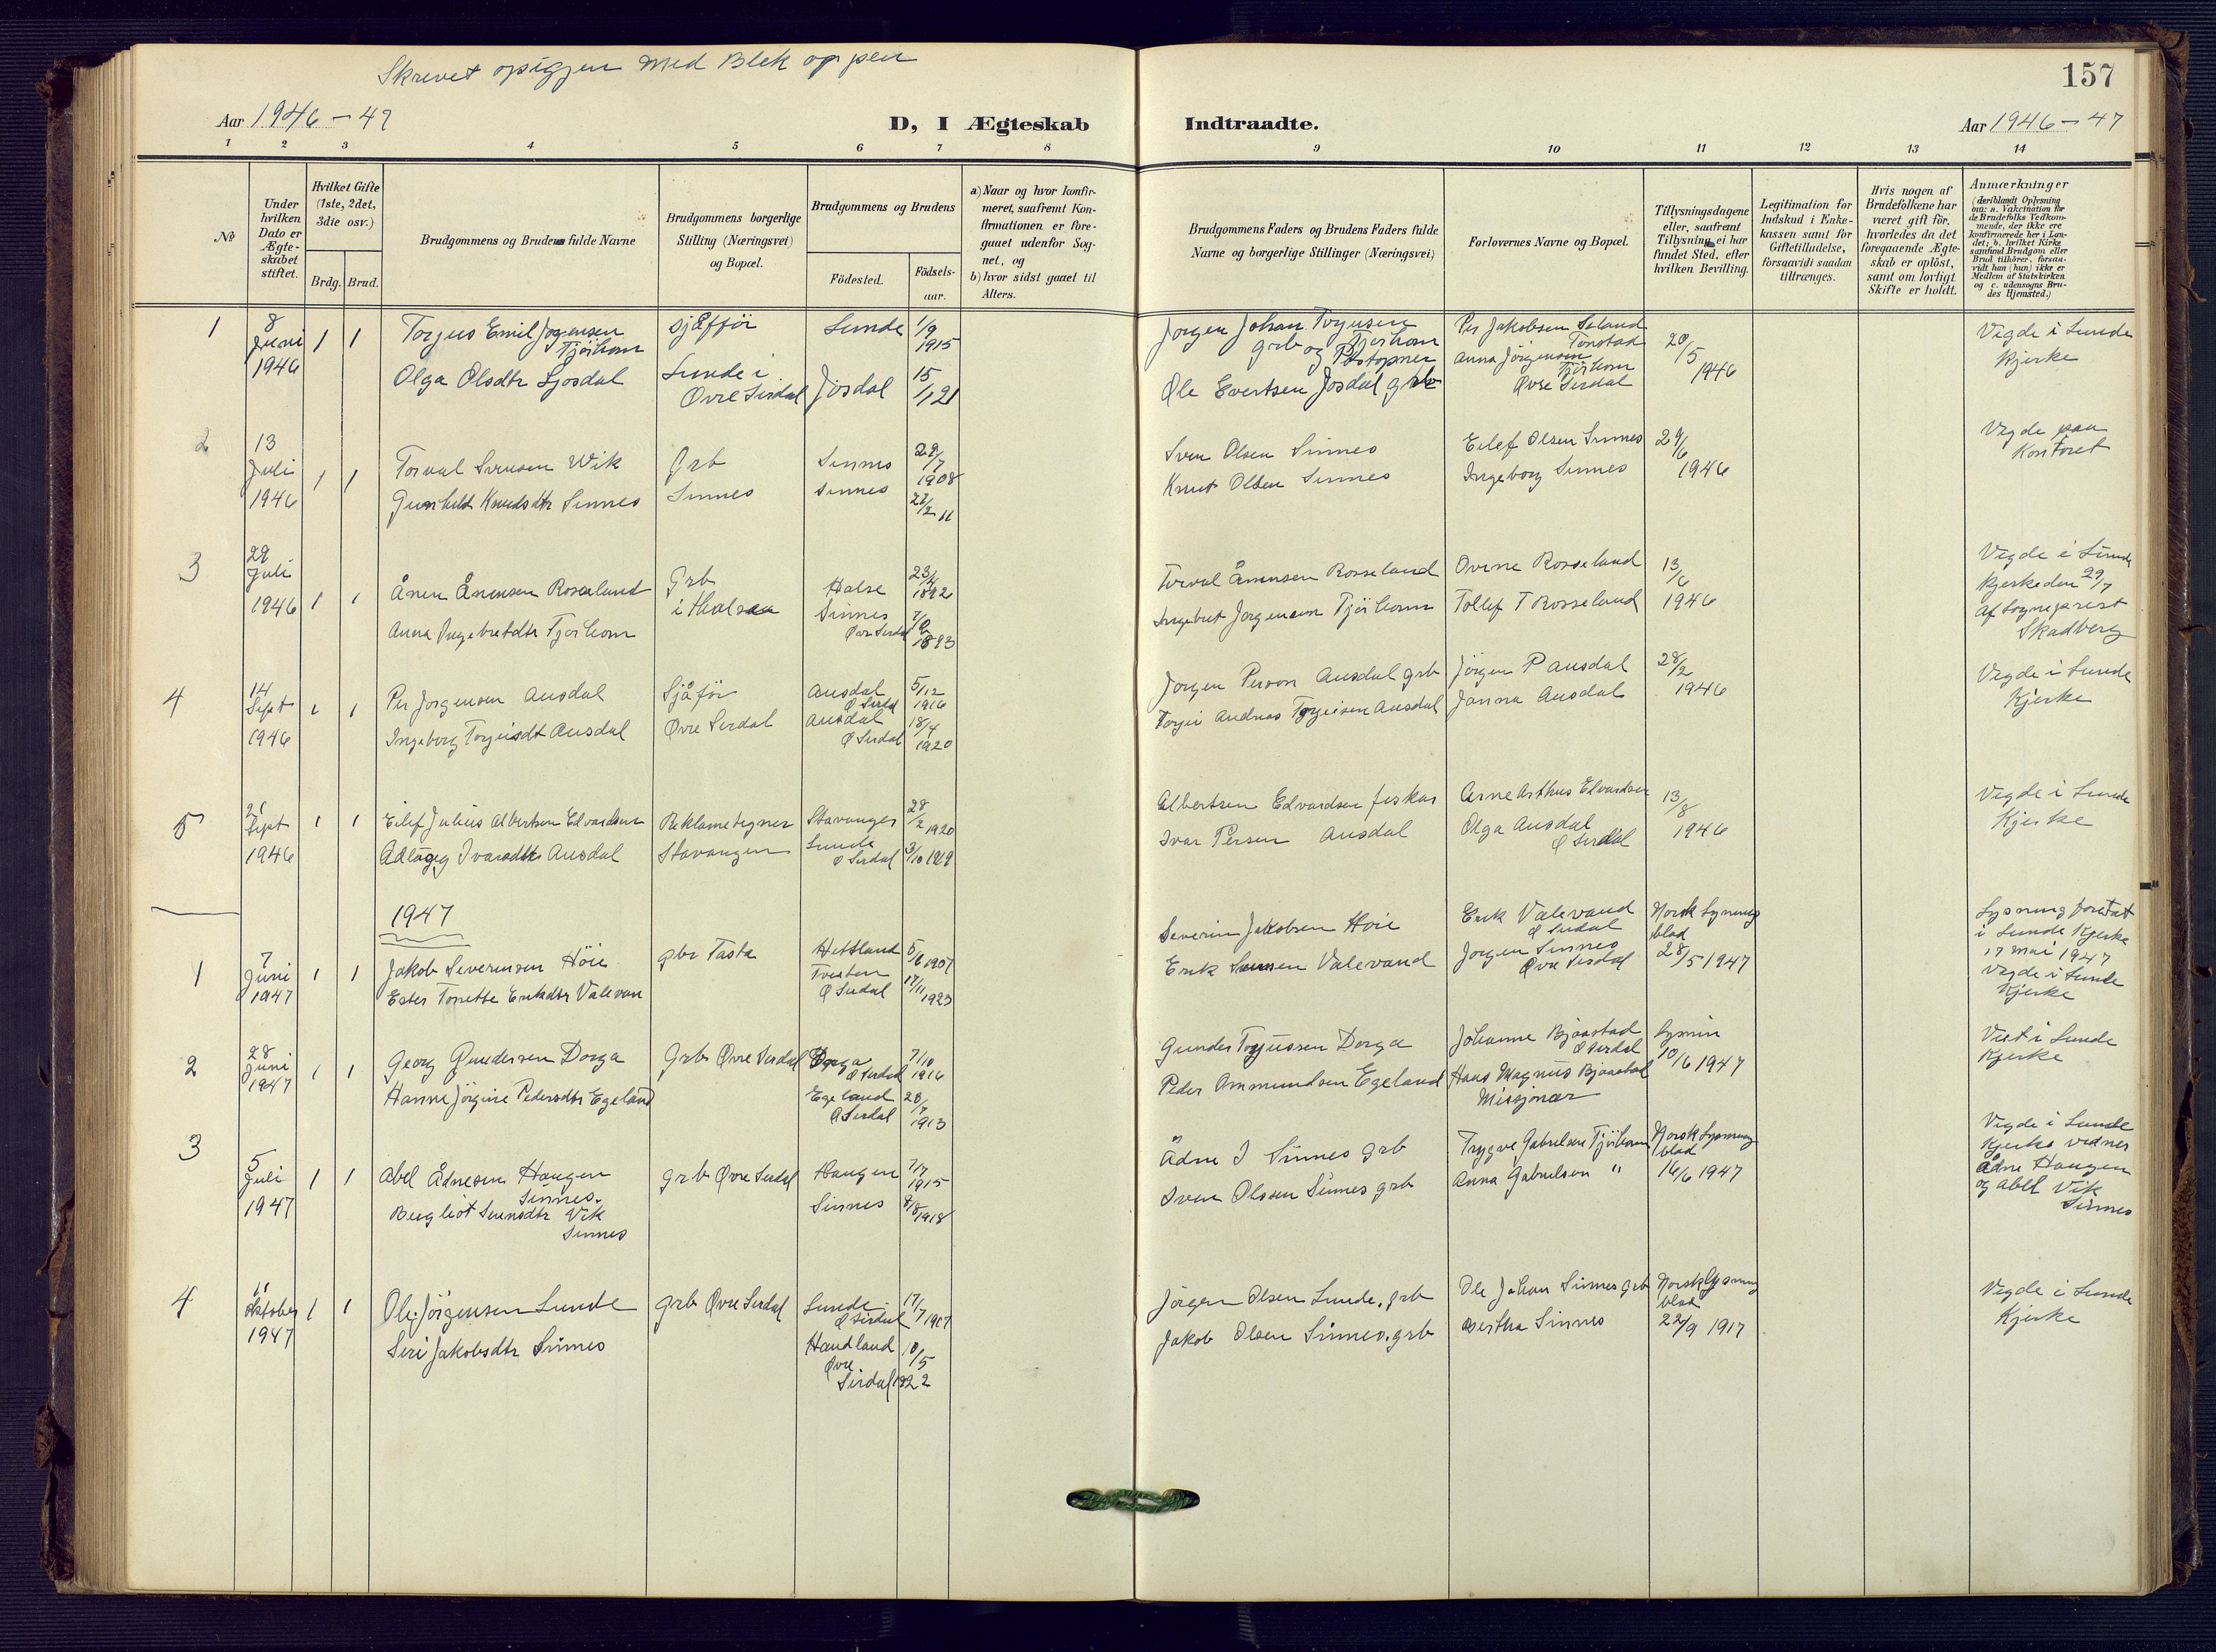 Skrevet opigjen med Blek op pen
157
Aar 1946 – 47
D, I Ægteskab Indtraadte.
Aar 1946 – 47
1 2 3 4 5 6 7 8 9 10 11 12 13 14
No
Under hvilken Dato er Ægteskabet stiftet.
Hvilket Gifte (1ste, 2det, 3die osv.)
Brdg. Brud.
Brudgommens og Brudens fulde Navne
Brudgommens borgerlige Stilling (Næringsvei) og Bopæl.
Brudgommens og Brudens
Födested.
Födselsaar.
a) Naar og hvor konfirmeret, saafremt Konfirmationen er foregaaet udenfor Sognet, og
b) hvor sidst gaaet til Alters.
Brudgommens Faders og Brudens Faders fulde Navne og borgerlige Stillinger (Næringsvei)
Forlovernes Navne og Bopæl.
Tillysningsdagene eller, saafremt Tillysning ei har fundet Sted, efter hvilken Bevilling.
Legitimation for Indskud i Enkekassen samt for Giftetilladelse, forsaavidt saadan tiltrænges.
Hvis nogen af Brudefolkene har været gift för, hvorledes da det foregaaende Ægteskab er oplöst, samt om lovligt Skifte er holdt.
Anmærkninger (deriblandt Oplysning om: a. Vakcination for de Brudefolks Vedkommende, der ikke ere konfirmerede her i Landet; b. hvilket Kirkesamfund Brudgom eller Brud tilhörer, forsaavidt han (hun) ikke er Medlem af Statskirken og c. udensogns Brudes Hjemsted.)
1
8 Juni 1946
1 1
Torjus Emil Jörgensen Tjörhom
Olga Olsdtr Ljosdal
Sjåfför
Lunde i Øvre Sirdal
Lunde 1/9 1915
Josdal 15/1 21
Jörgen Johan Torjusen Tjörhom grb og Postopner
Ole Evertsen Josdal grb
Per Jakobsen Seland Tonstad
Anna Jörgensen Tjörhom Øvre Sirdal
20/5 1946
Vigde i Lunde Kjerke
2
13 Juli 1946
1 1
Torval Svensen Wik
Gunhild Knudsdtr Sinnes
Grb
Sinnes
Sinnes 29/7 1908
Sinnes 22/2 11
Sven Olsen Sinnes
Knut Olsen Sinnes
Eilef Olsen Sinnes
Ingeborg Sinnes
29/6 1946
Vigde paa Kontoret
3
29 Juli 1946
1 1
Ånen Ånensen Rosseland
Anna Ingebretdtr Tjorhom
Grb
i Halsaa
Halse 23/4 1892
Sinnes Øvre Sirdal 1893
Torval Ånensen Rosseland
Ingebret Jorgensen Tjörhom
Ovine Rosseland
Tollef T Rosseland
13/6 1946
Vigde i Lunde Kjerke den 29/7 af Sogneprest Skadberg
4
14 Sept 1946
1 1
Per Jorgensen Ausdal
Ingeborg Torjeisdt Ausdal
Sjåför
Øvre Sirdal
Ausdal Ø Sirdal 5/12 1916
Ausdal Ø Sirdal 18/4 1920
Jorgen Person Ausdal grb
Torjei Andreas Torjeisen Ausdal
Jörgen P Ausdal
Janna Ausdal
28/2 1946
Vigde i Lunde Kjerke
5
21 Sept 1946
1 1
Eilef Julius Albertsen Edvardsen
Adlaug Ivarsdtr Ausdal
Reklametegner
Stavanger
Stavanger 28/2 1920
Lunde Ø Sirdal 3/10 1919
Albertsen Edvardsen fiskar
Ivar Persen Ausdal
Arne Arthus Edvardsen
Olga Ausdal Ø Sirdal
13/8 1946
Vigde i Lunde Kjerke
1947
1
7 Juni 1947
1 1
Jakob Severinsen Höie
Ester Tonette Eriksdtr Valevan
gbr Tasta
Hetland 5/6 1907
Tvesten Ø Sirdal 17/11 1923
Severin Jakobsen Höie
Erik Valevand
Erik Valevand Ø Sirdal
Jörgen Sinnes Øvre Sirdal
Norsk Lysningsblad 28/5 1947
Lysning foretat i Lunde Kjerke 17 mai 1947 Vigde i Lunde Kjerke
2
28 Juni 1947
1 1
Georg Gundersen Dorga
Hanne Jörgine Pedersdtr Egeland
Grb Øvre Sirdal
Dorga Ø Sirdal 7/10 1916
Egeland Ø Sirdal 28/7 1913
Gunder Torjussen Dorga
Peder Ommundsen Egeland
Johanne Bjaastad Ø Sirdal
Hans Magnus Bjaastad Missjonær
Lysnin 10/6 1947
Viet i Lunde Kjerke
3
5 Juli 1947
1 1
Abel Ådnesen Haugen Sinnes.
Bergliot Svensdtr Vik Sinnes
grb Øvre Sirdal
Haugen 7/7 1915
Sinnes 8/8 1918
Ådne I Sinnes grb
Sven Olsen Sinnes grb
Trygve Gabrielsen Tjörhom
Anna Gabrielsen "
Norsk Lysningblad 16/6 1947
Vigde i Lunde Kjerke vidner Ådne Haugen og Abel Vik Sinnes
4
11 Oktober 1947
1 1
Ole Jörgensen Lunde
Siri Jakobsdtr Sinnes
grb Øvre Sirdal
Lunde Ø Sirdal 17/7 1907
Handland Øvre Sirdal 10/5 1922
Jörgen Olsen Lunde, grb
Jakob Olsen Sinnes, grb
Ole Johan Sinnes grb
Bertha Sinnes
Norsk Lysningblad 22/9 1917
Vigde i Lunde Kjerke